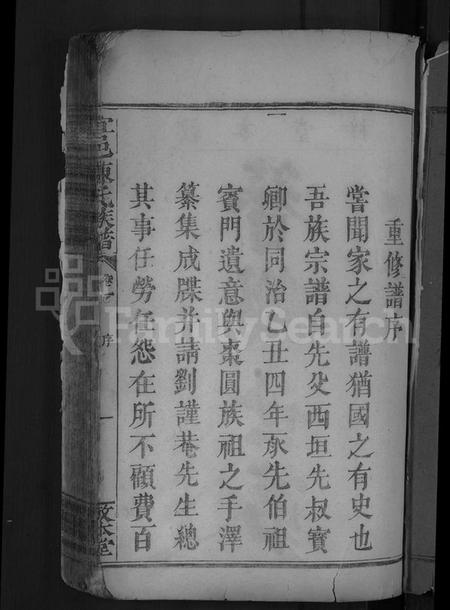 重修譜序
嘗聞家之有譜猶國之有史也
吾族宗譜自先父西垣先叔賓
卿於同治乙丑四年承先伯祖
賓門遺意與棗圓族祖之手澤
纂集成牒并請劉謹菴先生總
其事任勞任怨在所不顧費百
宜邑陳氏族譜
卷之
序
一
敦本堂
FamilySearch